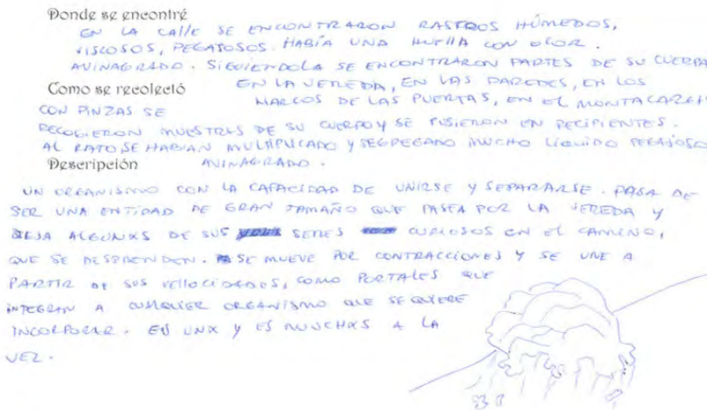 Donde se encontré
EN LA CALLE SE ENCONTRARON RASTROS HÚMEDOS,
VISCOSOS, PEGAJOSOS. HABÍA UNA HUELLA CON OLOR.
AVINAGRADO. SIGUIENDOLA SE ENCONTRARON PARTES DE SU CUERPO
EN LA VEREDA, EN LAS PAREDES, EN LOS
Como se recolectó
MARCOS DE LAS PUERTAS, EN EL MONTACARGAS
CON PINZAS SE
RECOGIERON MUESTRAS DE SU CUERPO Y SE PUSIERON EN RECIPIENTES.
AL RATO SE HABIAN MULTIPLICADO Y SEGREGADO MUCHO LIQUIDO PEGAJOSO
Descripción
AVINAGRADO.
UN ORGANISMO CON LA CAPACIDAD DE UNIRSE Y SEPARARSE. PASA DE
SER UNA ENTIDAD DE GRAN TAMAÑO QUE PASEA POR LA VEREDA Y
DEJA ALGUNXS DE SUS SERES CURIOSOS EN EL CAMINO,
QUE SE DESPRENDEN. SE MUEVE POR CONTRACCIONES Y SE UNE A
PARTIR DE SUS VELLOCIDADES, COMO PORTALES QUE
INTEGRAN A CUALQUIER ORGANISMO QUE SE QUIERE
INCORPORAR. ES UNX Y ES MUUCHXS A LA
VEZ.